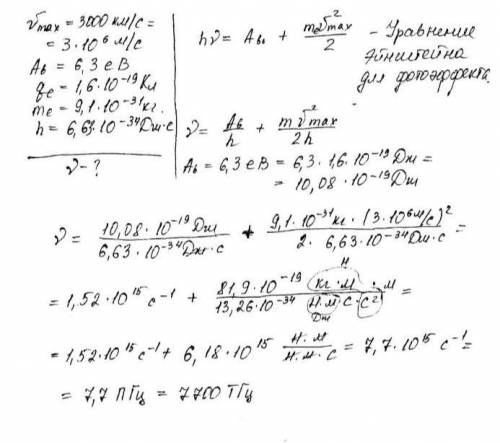 υmax = 3000 км/с =
= 3·10⁶ м/с
Aв = 6,3 еВ
qe = 1,6·10⁻¹⁹ Кл
me = 9,1·10⁻³¹ кг.
h = 6,63·10⁻³⁴ Дж·с
ν - ?
hν = Aв + mυ²max/2 - Уравнение
Эйнштейна
для фотоэффекта.
ν = Aв/h + mυ²max/2h
Aв = 6,3 еВ = 6,3·1,6·10⁻¹⁹ Дж =
= 10,08·10⁻¹⁹ Дж
ν = 10,08·10⁻¹⁹ Дж / 6,63·10⁻³⁴ Дж·с + 9,1·10⁻³¹ кг·(3·10⁶ м/с)² / 2·6,63·10⁻³⁴ Дж·с =
= 1,52·10¹⁵ с⁻¹ + 81,9·10⁻¹⁹ кг·м·м / 13,26·10⁻³⁴ Н·м·с·с² =
Н
Дж
= 1,52·10¹⁵ с⁻¹ + 6,18·10¹⁵ Н·м / Н·м·с = 7,7·10¹⁵ с⁻¹ =
= 7,7 ПГц = 7700 ТГц